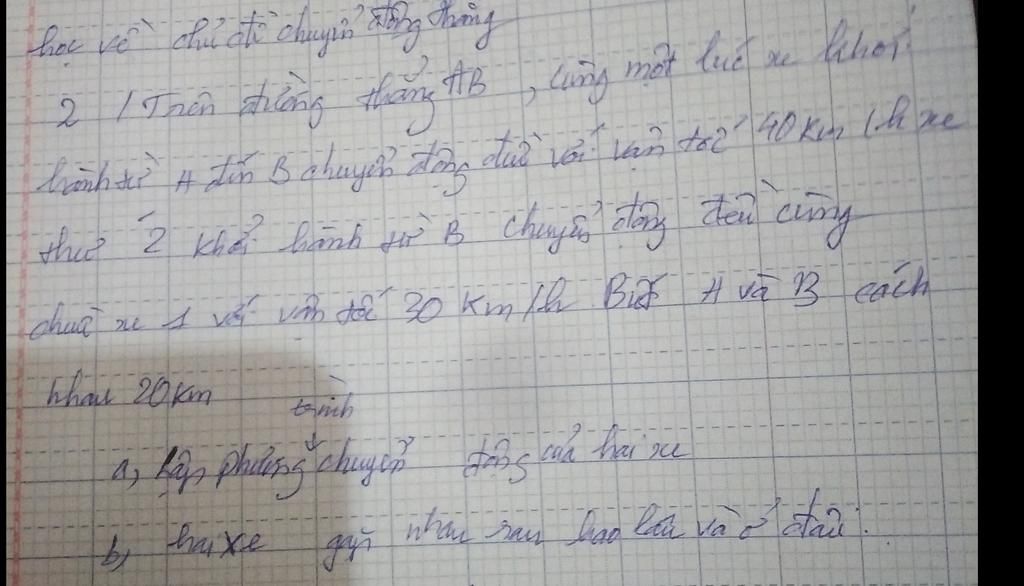 học về chủ đề chuyển động thẳng
2 / Trên đường thẳng AB, cùng một lúc xe khởi
hành từ A đến B chuyển động đều với vận tốc 40 km/h xe
thứ 2 khởi hành từ B chuyển động đều cùng
chiều xe 1 với vận tốc 30 km/h Biết A và B cách
nhau 20km
trình
a, Lập phương chuyển động của hai xe
b, hai xe gặp nhau sau bao lâu và ở đâu.